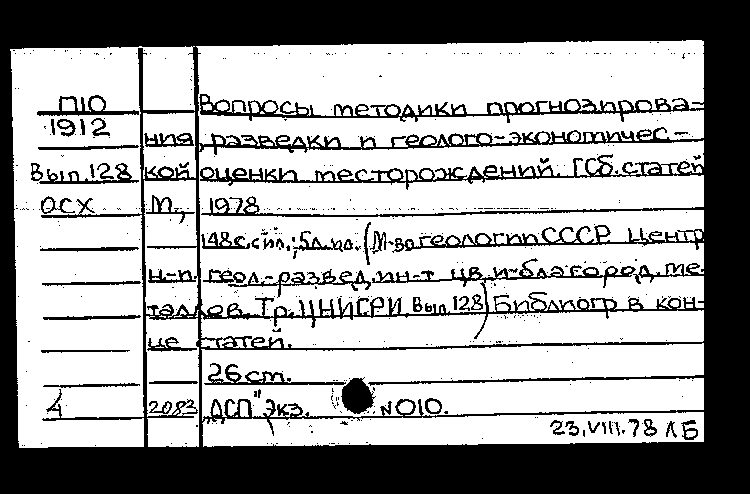 П10 Вопросы методики прогнозирова-
1912 ния, разведки и геолого-экономичес-
Вып.128 кой оценки месторождений. [Сб.статей
ОСХ М., 1978
148с.с ил.; 5л.пл. (М-во геологии СССР Центр
н-и. геол.-развед. ин-т цв и благород. ме-
таллов. Тр. ЦНИГРИ. Вып.128) Библиогр в кон-
це статей.
26 ст.
4 2083 „ДСП" Экз. N 010.
23.VIII.78 ЛБ